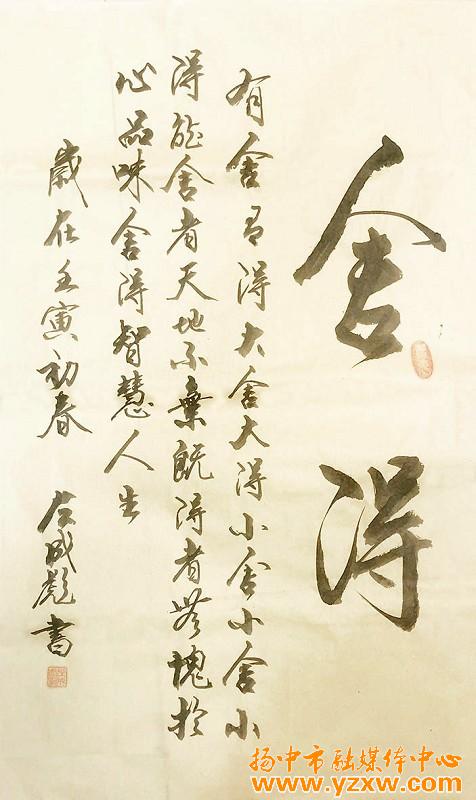 舍得
有舍有得大舍大得小舍小舍小
得能舍者天地不棄既得者無愧於
心品味舍得智慧人生
歲在壬寅初春 左成彪書
扬中市融媒体中心
www.yzxw.com